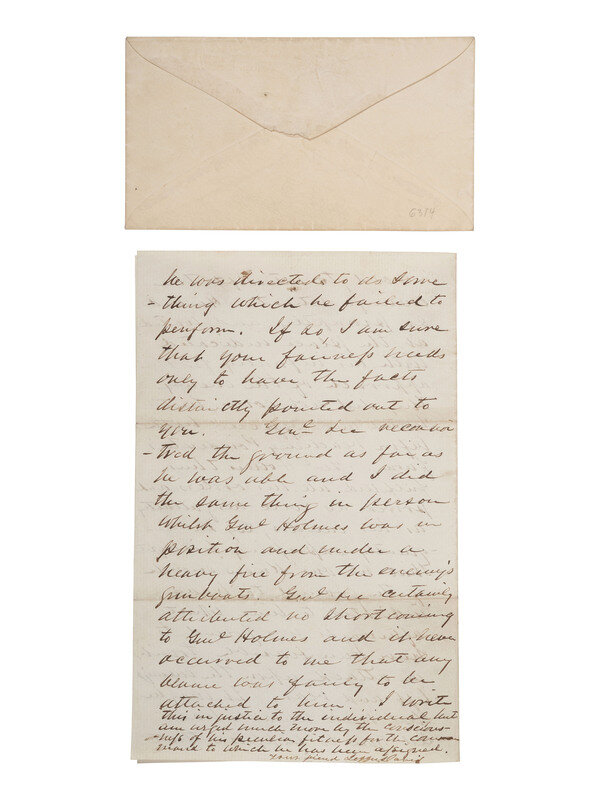 6314
he was directed to do some
-thing which he failed to
perform. If so, I am sure
that your fairness needs
only to have the facts
distinctly pointed out to
you. Genl. Lee reconnoi
-tred the ground as far as
he was able and I did
the same thing in person
whilst Genl. Holmes was in
position and under a
heavy fire from the enemy's
gunboats. Genl. Lee certainly
attributed no shortcoming
to Genl. Holmes and it never
occurred to me that any
blame was fairly to be
attached to him. I write
this in justice to the individual but
am urged much more by the conscious-
-ness of his peculiar fitness for the com-
-mand to which he has been assigned.
Your friend Jeffn. Davis